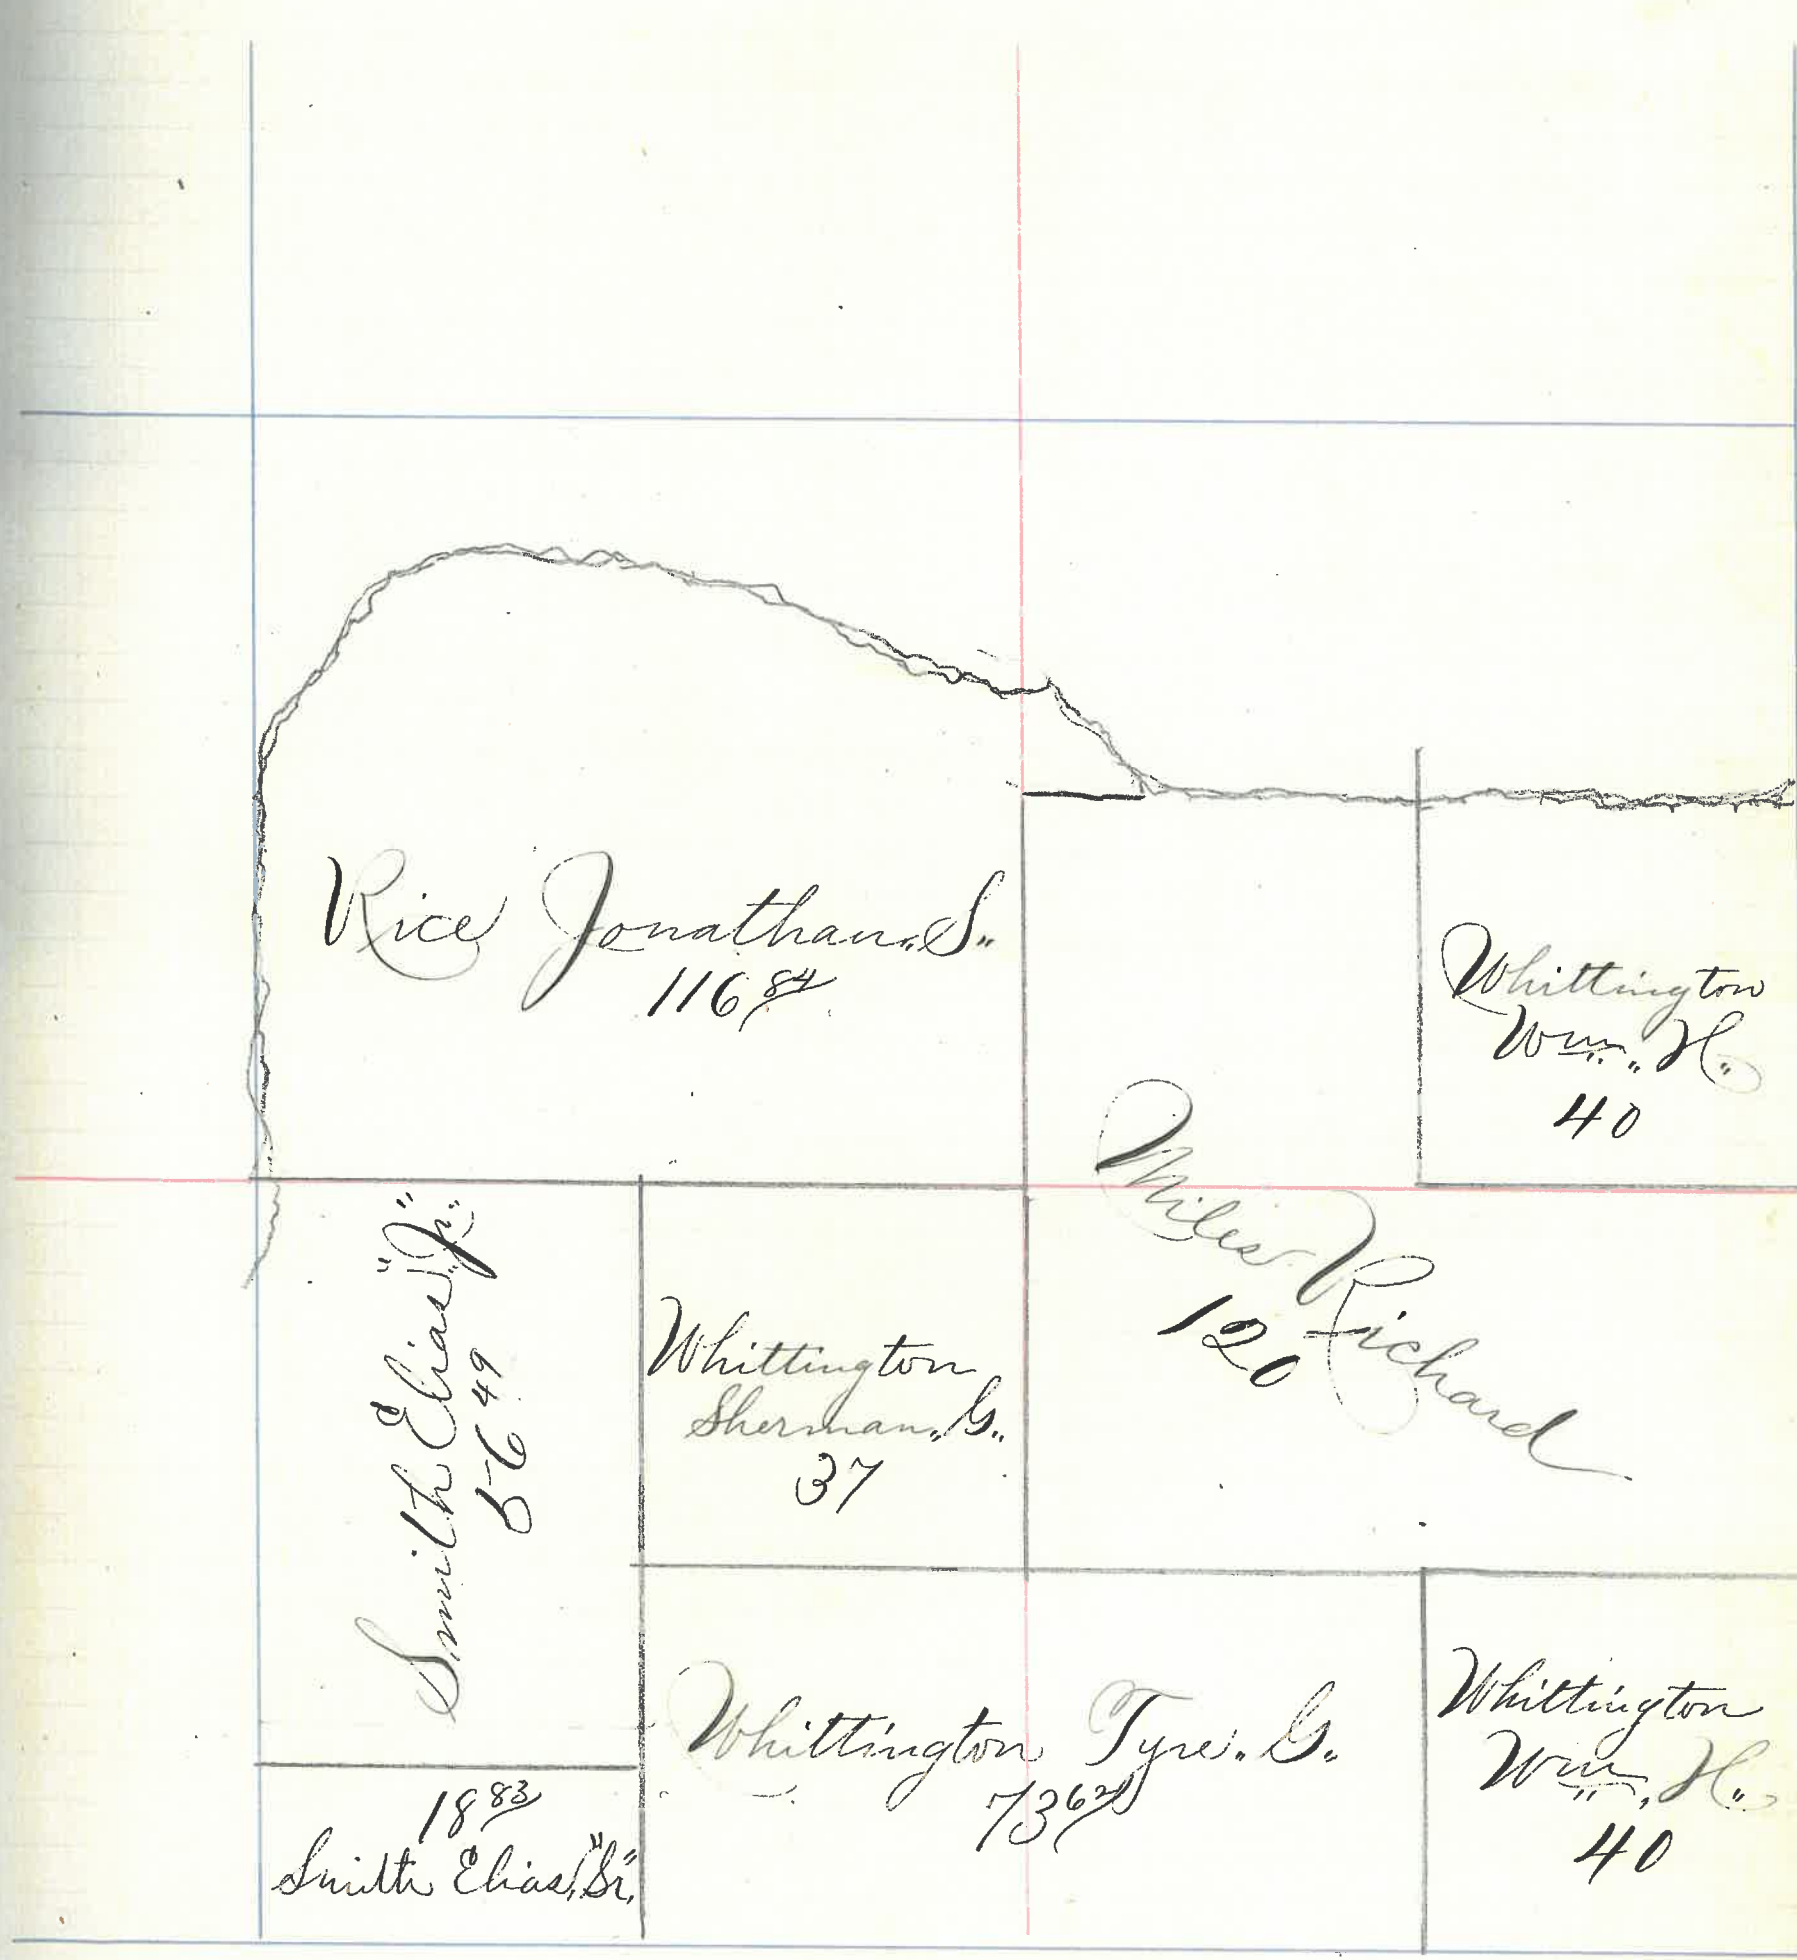 Rice Jonathan „S„
116 84
Whittington
Wm „ H„
40
Miles Richard
120
Smith Elias "Jr."
56 49
Whittington
Sherman „G„
37
Whittington Tyre „ G„
73 62
Whittington
Wm „ H„
40
18 83
Smith Elias, "Sr."